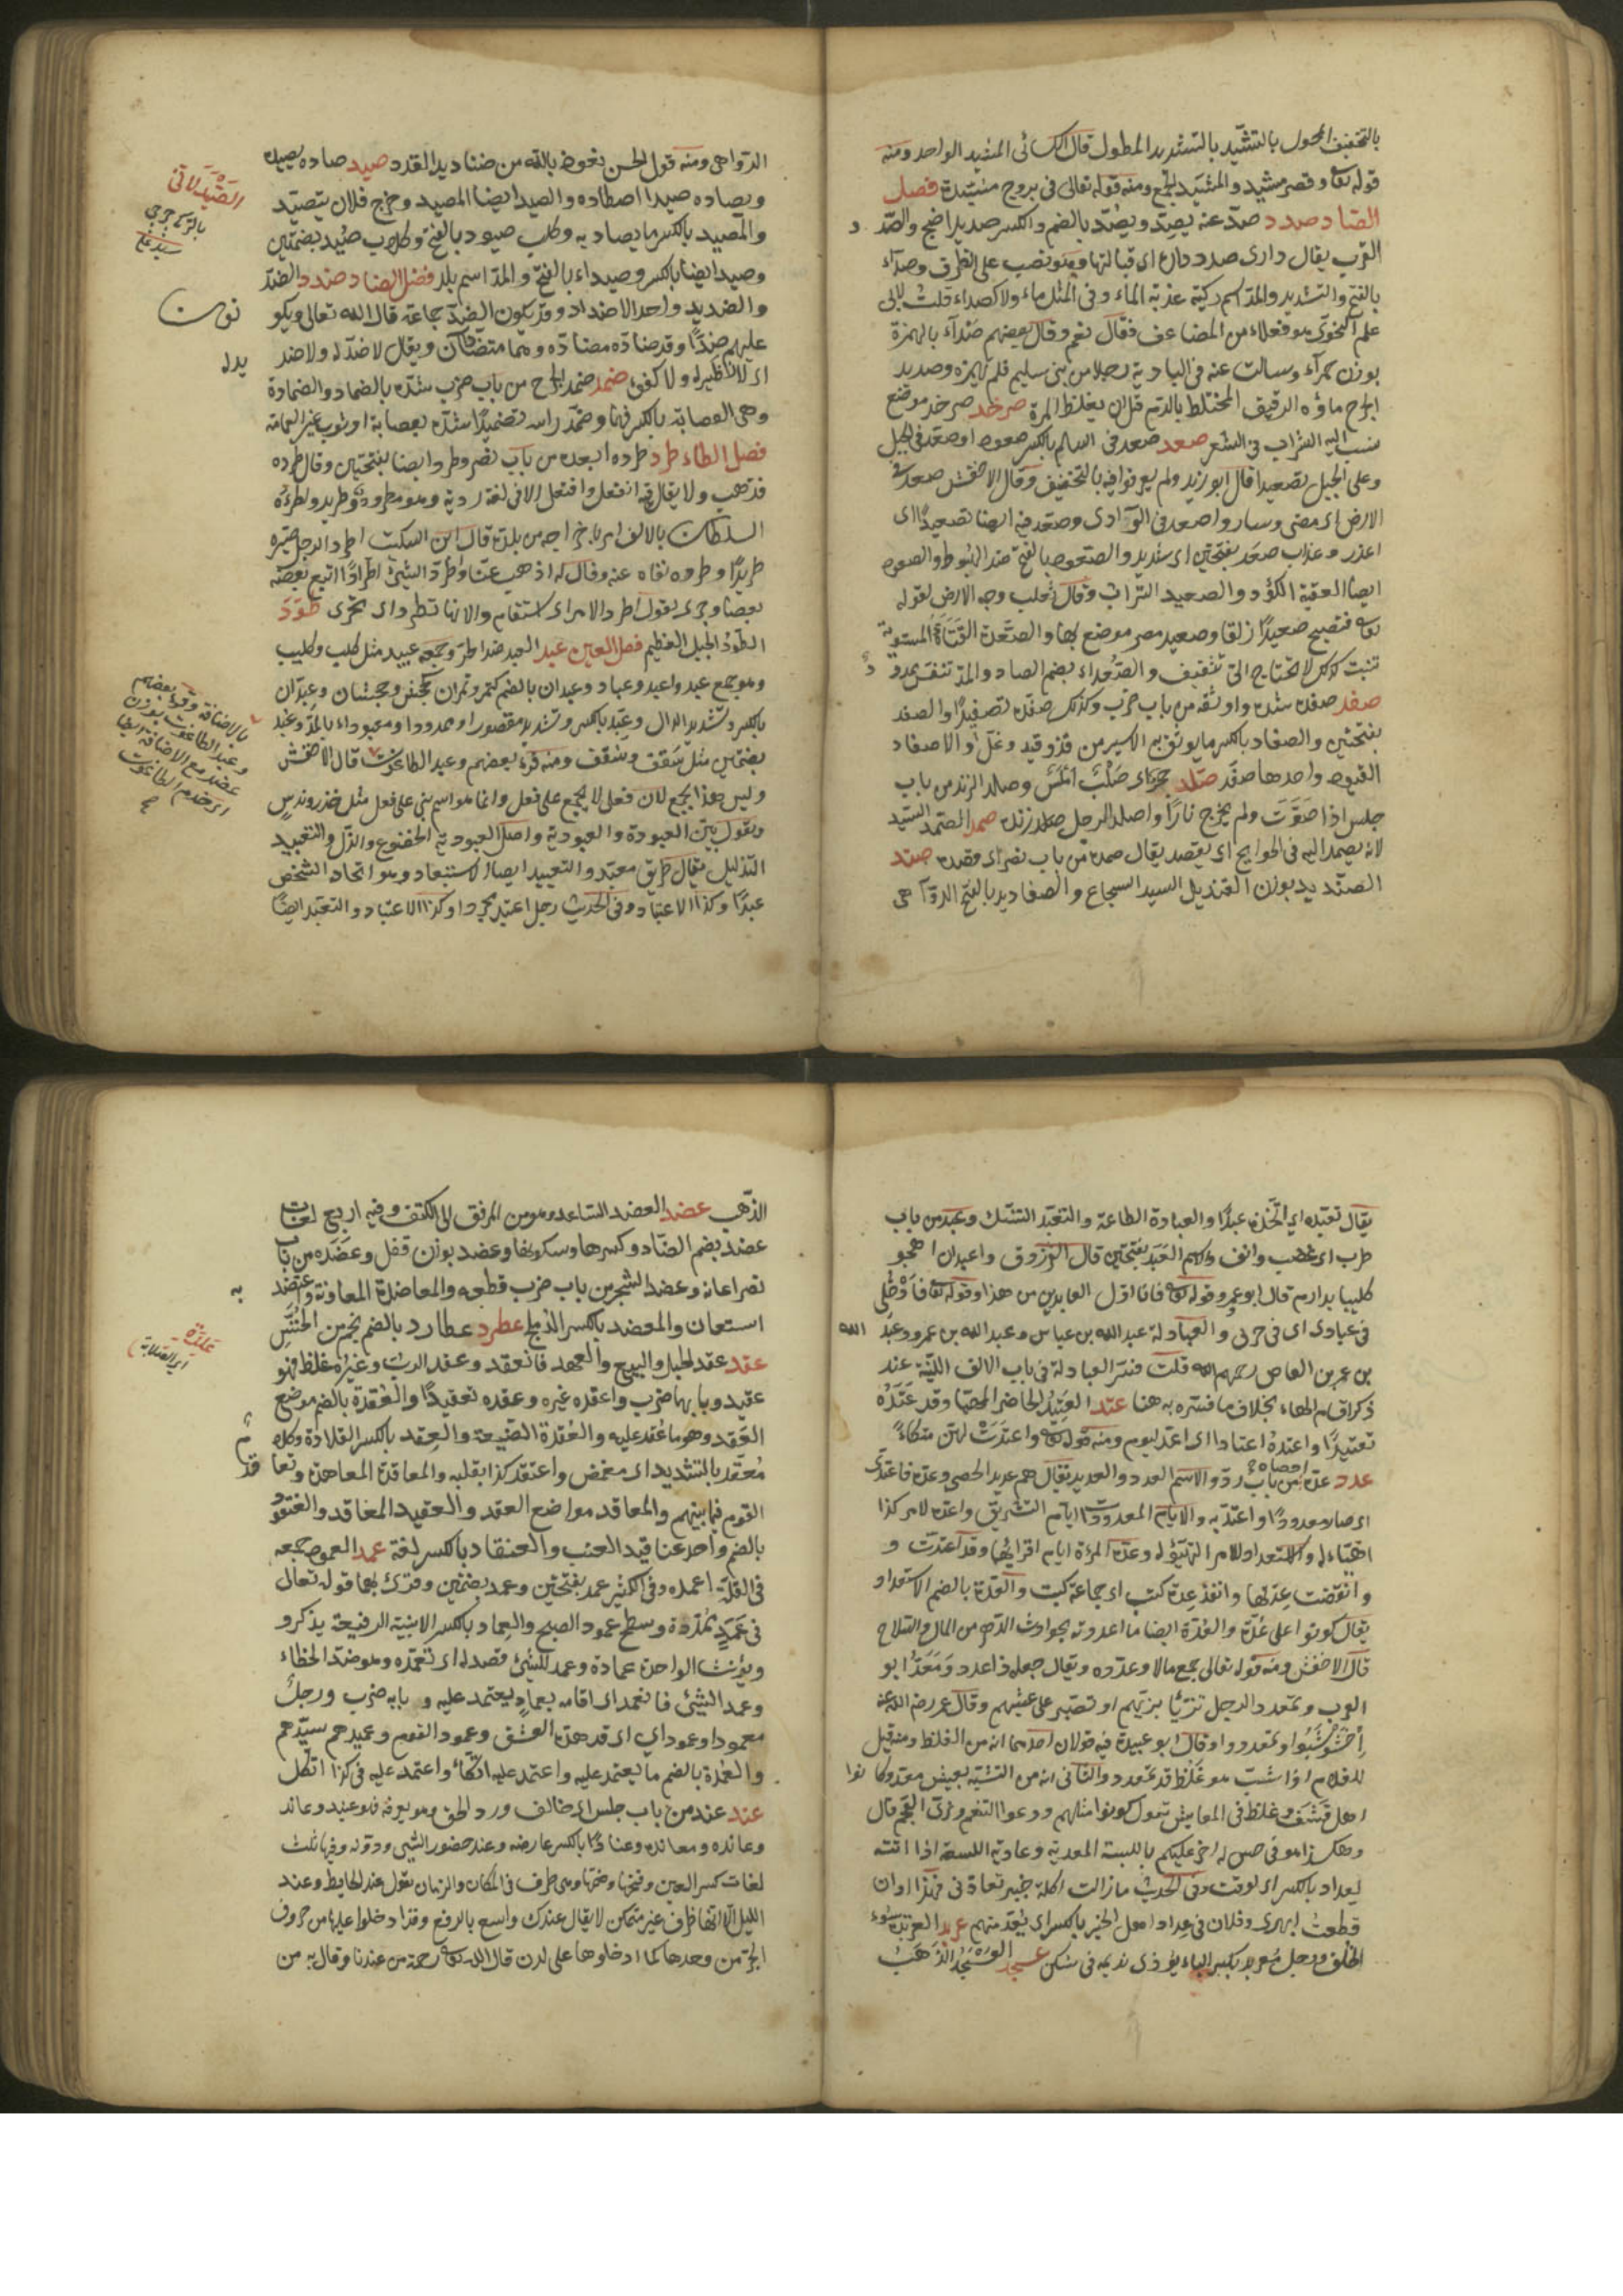 بالتخفيف المعمول بالشيد وبالتشديد المطول قال الكسائى المشيد الواحد ومنه
قوله تعا وقصر مشيد والمشيد للجمع ومنه قوله تعالى فى بروج مشيدة فصل
الصاد صدد صدّ عنه يصدّ ويصُدّ بالضم والكسر صديدا ضج والصدد
القرب يقال دارى صدد داره اى قبالتها وهو نصب على الظرف وصدآء
بالفتح والتشديد والمد اسم ركية عذبة الماء وفى المثل ماء ولا كصداء قلت لابى
على النحوى هو فعلاء من المضاعف فقال نعم وقال بعضهم صدآء بالهمزة
بوزن حمرآء وسالت عنه فى البادية رجلا من بنى سليم فلم يهمزه وصديد
الجرح ماؤه الرقيق المختلط بالدم قبل ان يغلظ المدة صرخد صرخد موضع
ينسب اليه الشراب فى الشعر صعد صعد فى السلم بالكسر صعودا وصعد فى الجبل
وعلى الجبل تصعيدا قال ابو زيد ولم يعرفوا فيه بالتخفيف وقال الاخفش صعد فى
الارض اى مضى وسار واصعد فى الوادى وصعد فيه ايضا تصعيدًا اى
انحدر وعذاب صعد بفتحتين اى شديد والصعود بالفتح ضد الهبوط والصعود
ايضا العقبة الكؤد والصعيد التراب وقال ثعلب وجه الارض لقوله
تعا فتصبح صعيدًا زلقا وصعيد مصر موضع بها والصعدة القناة المستوية
تنبت كذلك لا تحتاج الى تثقيف والصعداء بضم الصاد والمد تنفس ممدود
صفد صفده شده واوثقه من باب ضرب وكذلك صفده تصفيدًا والصفد
بفتحتين والصفاد بالكسر ما يوثق به الاسير من قد وقيد وغل والاصفاد
القيود واحدها صفد صلد حجر صلد اى صلب املس وصلد الزند من باب
جلس اذا صوّت ولم يخرج نارًا واصلد الرجل صلد زنده صمد الصمد السيد
لانه يصمد اليه فى الحوايج اى يقصد يقال صمده من باب نصر اى قصده صند
الصنديد بوزن القنديل السيد الشجاع والصناديد بالفتح الدواهى
الدواهى ومنه قول الحسن نعوذ بالله من صناديد القدر صيد صاده يصيده
ويصاده صيدا اصطاده والصيد ايضا المصيد وخرج فلان يتصيد
والمصيد بالكسر ما يصاد به وكلب صيود بالفتح وكلاب صُيُد بضمتين
وصيد ايضا بالكسر وصيداء بالفتح والمد اسم بلد فصل الضاد ضدد الضد
والضديد واحد الاضداد وقد يكون الضد جماعة قال الله تعالى ويكونون
عليهم ضدًّا وقد ضاده مضادة وهما متضادان ويقال لا ضد له ولا ضديد له
اى لا نظير له ولا كفؤ ضمد ضمد الجرح من باب ضرب شده بالضماد والضمادة
وهى العصابة بالكسر فيهما وضمد راسه تضميدًا شده بعصابة او ثوب غير العمامة
فصل الطاء طرد طرده ابعده من باب نصر وطردا ايضا بفتحتين وقال طرده
فذهب ولا يقال فيه انفعل وافتعل الا فى لغة ردية وهو مطرود وطريد واطرده
السلطان بالالف امر باخراجه من بلده قال ابن السكت اطرد الرجل صيره
طريدًا وطرده نفاه عنه وقال له اذهب عنا واطرد الشيئ اطرادًا اتبع بعضه
بعضا وجرى يقول اطرد الامر اى استقام والانهار تطرد اى تجرى طود
الطود الجبل العظيم فصل العين عبد العبد ضد الحر وجمعه عبيد مثل كلب وكليب
وهو جمع عبد واعبد وعباد وعبدان بالضم كتمر وتمران كجحش وجحشان وعبدّان
بالكسر وتشديد الدال وعبدّا بالكسر وتشديد مقصورا وممدودا ومعبوداء بالمد وعبد
بضمتين مثل سقف وسقف ومنه قرء بعضهم وعبد الطاغوت قال الاخفش
وليس هذا بجمع لان فعل لا يجمع على فعل وانما هو اسم بنى على فعل مثل حذر وندس
وتقول بين العبودة والعبودية واصل العبودية الخضوع والذل والتعبيد
التذليل يقال طريق معبد والتعبيد ايضا الاستعباد وهو اتخاذ الشخص
عبدًا وكذا الاعتباد وفى الحديث رجل اعتبد محررا وكذا الاعتباد والتعبد ايضا
الصيدلانى
بالاضافة وقرء بعضهم
وعبد الطاغوت بوزن
عضد مع الاضافة ايضا
اى خدم الطاغوت
صح
يقال تعبده اى اتخذه عبدًا والعبادة الطاعة والتعبد التنسك وعبد من باب
طرب اى غضب وانف والاسم العبد بفتحتين قال الفرزدق واعبد ان اهجو
كليبا بدارم قال ابو عمرو وقوله تعا فانا اول العابدين من هذا وقوله تعا فادخلى
فى عبادى اى فى حزبى والعبادلة عبد الله بن عباس وعبد الله بن عمرو وعبد الله
بن عمر بن العاص رحمهم الله قلت فسر العبادلة فى باب الالف اللينة عند
ذكر اقسام الهاء بخلاف ما فسره به هنا عتد العتيد الحاضر المهيا وقد عتّده
تعتيدًا واعتده اعتادا اى اعده ليوم ومنه قوله تعا واعتدت لهن متكاءً
عدد عدّه احصاه من باب ردّ والاسم العدد والعديد يقال هم عديد الحصى وعدّه فاعتدى
اى صار معدودًا واعتد به والايام المعدودات ايام التشريق واعده لامر كذا
اهيئا له والاستعداد للامر التهيؤ له وعدة المرئة ايام اقرائها وقد اعتدت و
وانقضت عدتها وانفذ عدة كتب اى جماعة كتب والعدة بالضم الاستعداد
يقال كونوا على عدّة والعدة ايضا ما اعدوته لحوادث الدهر من المال والسلاح
قال الاخفش ومنه قوله تعالى جمع مالا وعدده ويقال جعله ذا عدد ومعدّ ابو
العرب وتمعدد الرجل تزيّا بزيهم او تصبر على عيشهم وقال عمر رضى الله عنه
اخشوشبوا وتمعددوا وقال ابو عبيدة فيه قولان احدهما انه من الغلظ ومنه قيل
للغلام اذا اشب هو غلظ قد تمعدد والثانى انه من التشبه بعيش معد وكانوا
اهل قشف وغلظ فى المعايش تقول كونوا مثلهم ودعوا التنعم وزى العجم قال
وهكذا هو فى حديث اخر عليكم باللبسة المعدية وعادته اللسعة اذا اتته
لعداد بالكسر اى لوقت وفى الحديث ما زالت اكلة خيبر تعادّنى فهذا اوان
قطعت ابهرى وفلان فى عداد اهل الخير بالكسر اى يعد منهم عربد العربدة سوء
الخلق ورجل معربد بكسر الباء يؤذى نديمه فى سكره عسجد العسجد الذهب
الذهب عضد العضد الساعد وهو من المرفق الى الكتف وفيه اربع لغات
عضد بضم الضاد وكسرها وسكونها وعضد بوزن قفل وعضده من باب
نصر اعانه وعضد الشجر من باب ضرب قطعه والمعاضدة المعاونة واعتضد به
استعان والمعضد بالكسر الدملج عطرد عطارد بالضم نجم من الخنس
عقد عقد الحبل والبيع والعهد فانعقد وعقد الرب وغيره غلظ فهو
عقيد وبابهما ضرب واعقده غيره وعقده تعقيدًا والعقدة بالضم موضع
العقد وهو ما عقد عليه والعقدة الضيعة والعقد بالكسر القلادة وكلام
معقد بالتشديد اى مغمض واعتقد كذا بقلبه والمعاقدة المعاهدة وتعاقد
القوم فيما بينهم والمعاقد مواضع العقد والعقيد المعاقد والعنقود
بالضم واحد عناقيد العنب والعنقاد بالكسر لغة عمد العمود جمعه
فى القلة اعمدة وفى الكثير عمد بفتحتين وعمد بضمتين وقرئ بهما قوله تعالى
فى عمد ممددة وسطع عمود الصبح والعماد بالكسر الابنية الرفيعة يذكر و
ويؤنث الواحدة عمادة وعمد للشيئ قصد له اى تعمده وهو ضد الخطاء
وعمد الشيئ فانعمد اى اقامه بعماد يعتمد عليه وبابه ضرب ورجل
معمود او عمود اى قد هده العشق وعمود القوم وعميدهم سيدهم
والعمدة بالضم ما يعتمد عليه واعتمد عليه اتكاء واعتمد عليه فى كذا اتكل
عند عند من باب جلس اى خالف ورد الحق وهو يعرفه فهو عنيد وعاند
وعانده معاندة وعنادًا بالكسر عارضه وعند حضور الشئ ودونه وفيها ثلث
لغات كسر العين وفتحها وضمها وهى ظرف فى المكان والزمان تقول عند الحايط وعند
الليل الا انها ظرف غير متمكن لا يقال عندك واسع بالرفع وقد ادخلوا عليها من حروف
الجر من وحدها كما ادخلوها على لدن قال الله تعا رحمة من عندنا وقال به من